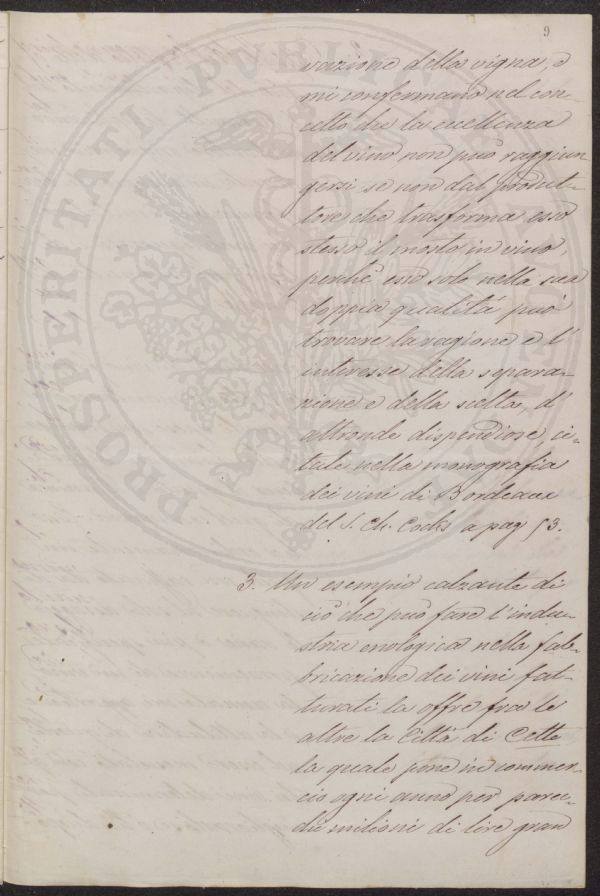 9
vazione della vigna, e
mi confermano nel con-
cetto che la eccellenza
del vino non può raggiun
gersi se non dal produt-
tore che trasforma esso
stesso il mosto in vino,
perchè esso solo nella sua
doppia qualità può
trovare la ragione e l'
interesse della separa-
zione e della scelta, d'
altronde dispendiose, ci-
tate nella monografia
dei vini di Bordeaux
del S. Ch. Cocks a pag 53.
3. Un esempio calzante di
ciò che può fare l'indu-
stria enologica nella fab-
bricazione dei vini fat-
turati la offre fra le
altre la Città di Cette
la quale pone in commer-
cio ogni anno per parec-
chi milioni di lire gran
PROSPERITATI PVBLICAE